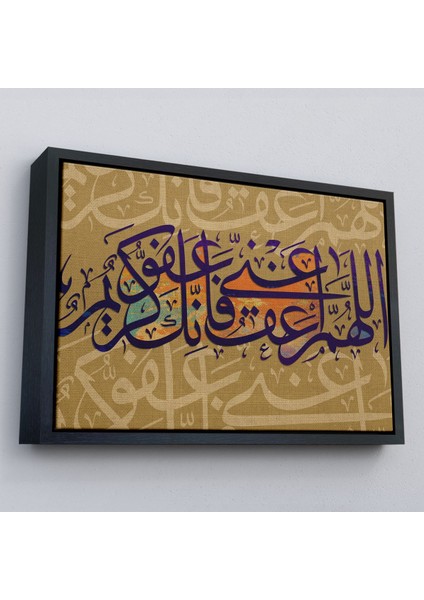 اللَّهُمَّ اعْفُ عَنِّي فَإِنَّكَ عَفُوٌّ كَرِيمٌ